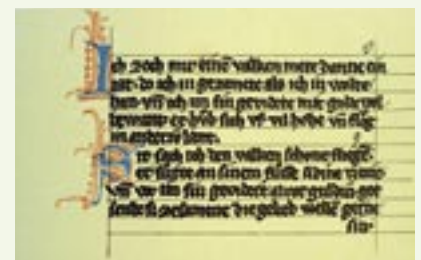 Ich zoch mir einē valken mere danne ein
iar. do ich in gezamete als ich in wolte
han. vn̄ ich im sin gevidere mit golde wol
bewant er hvb sich vf vil hohe vn̄ floͮg
in anderiv lant.
Sit sach ich den valken schone fliegē.
er fvͦrte an sinem fvͦsse sidine riemē
vn̄ was im sin gevidere alrot guldin got
sende si zesamene die gelieb wellē gerne
sin.